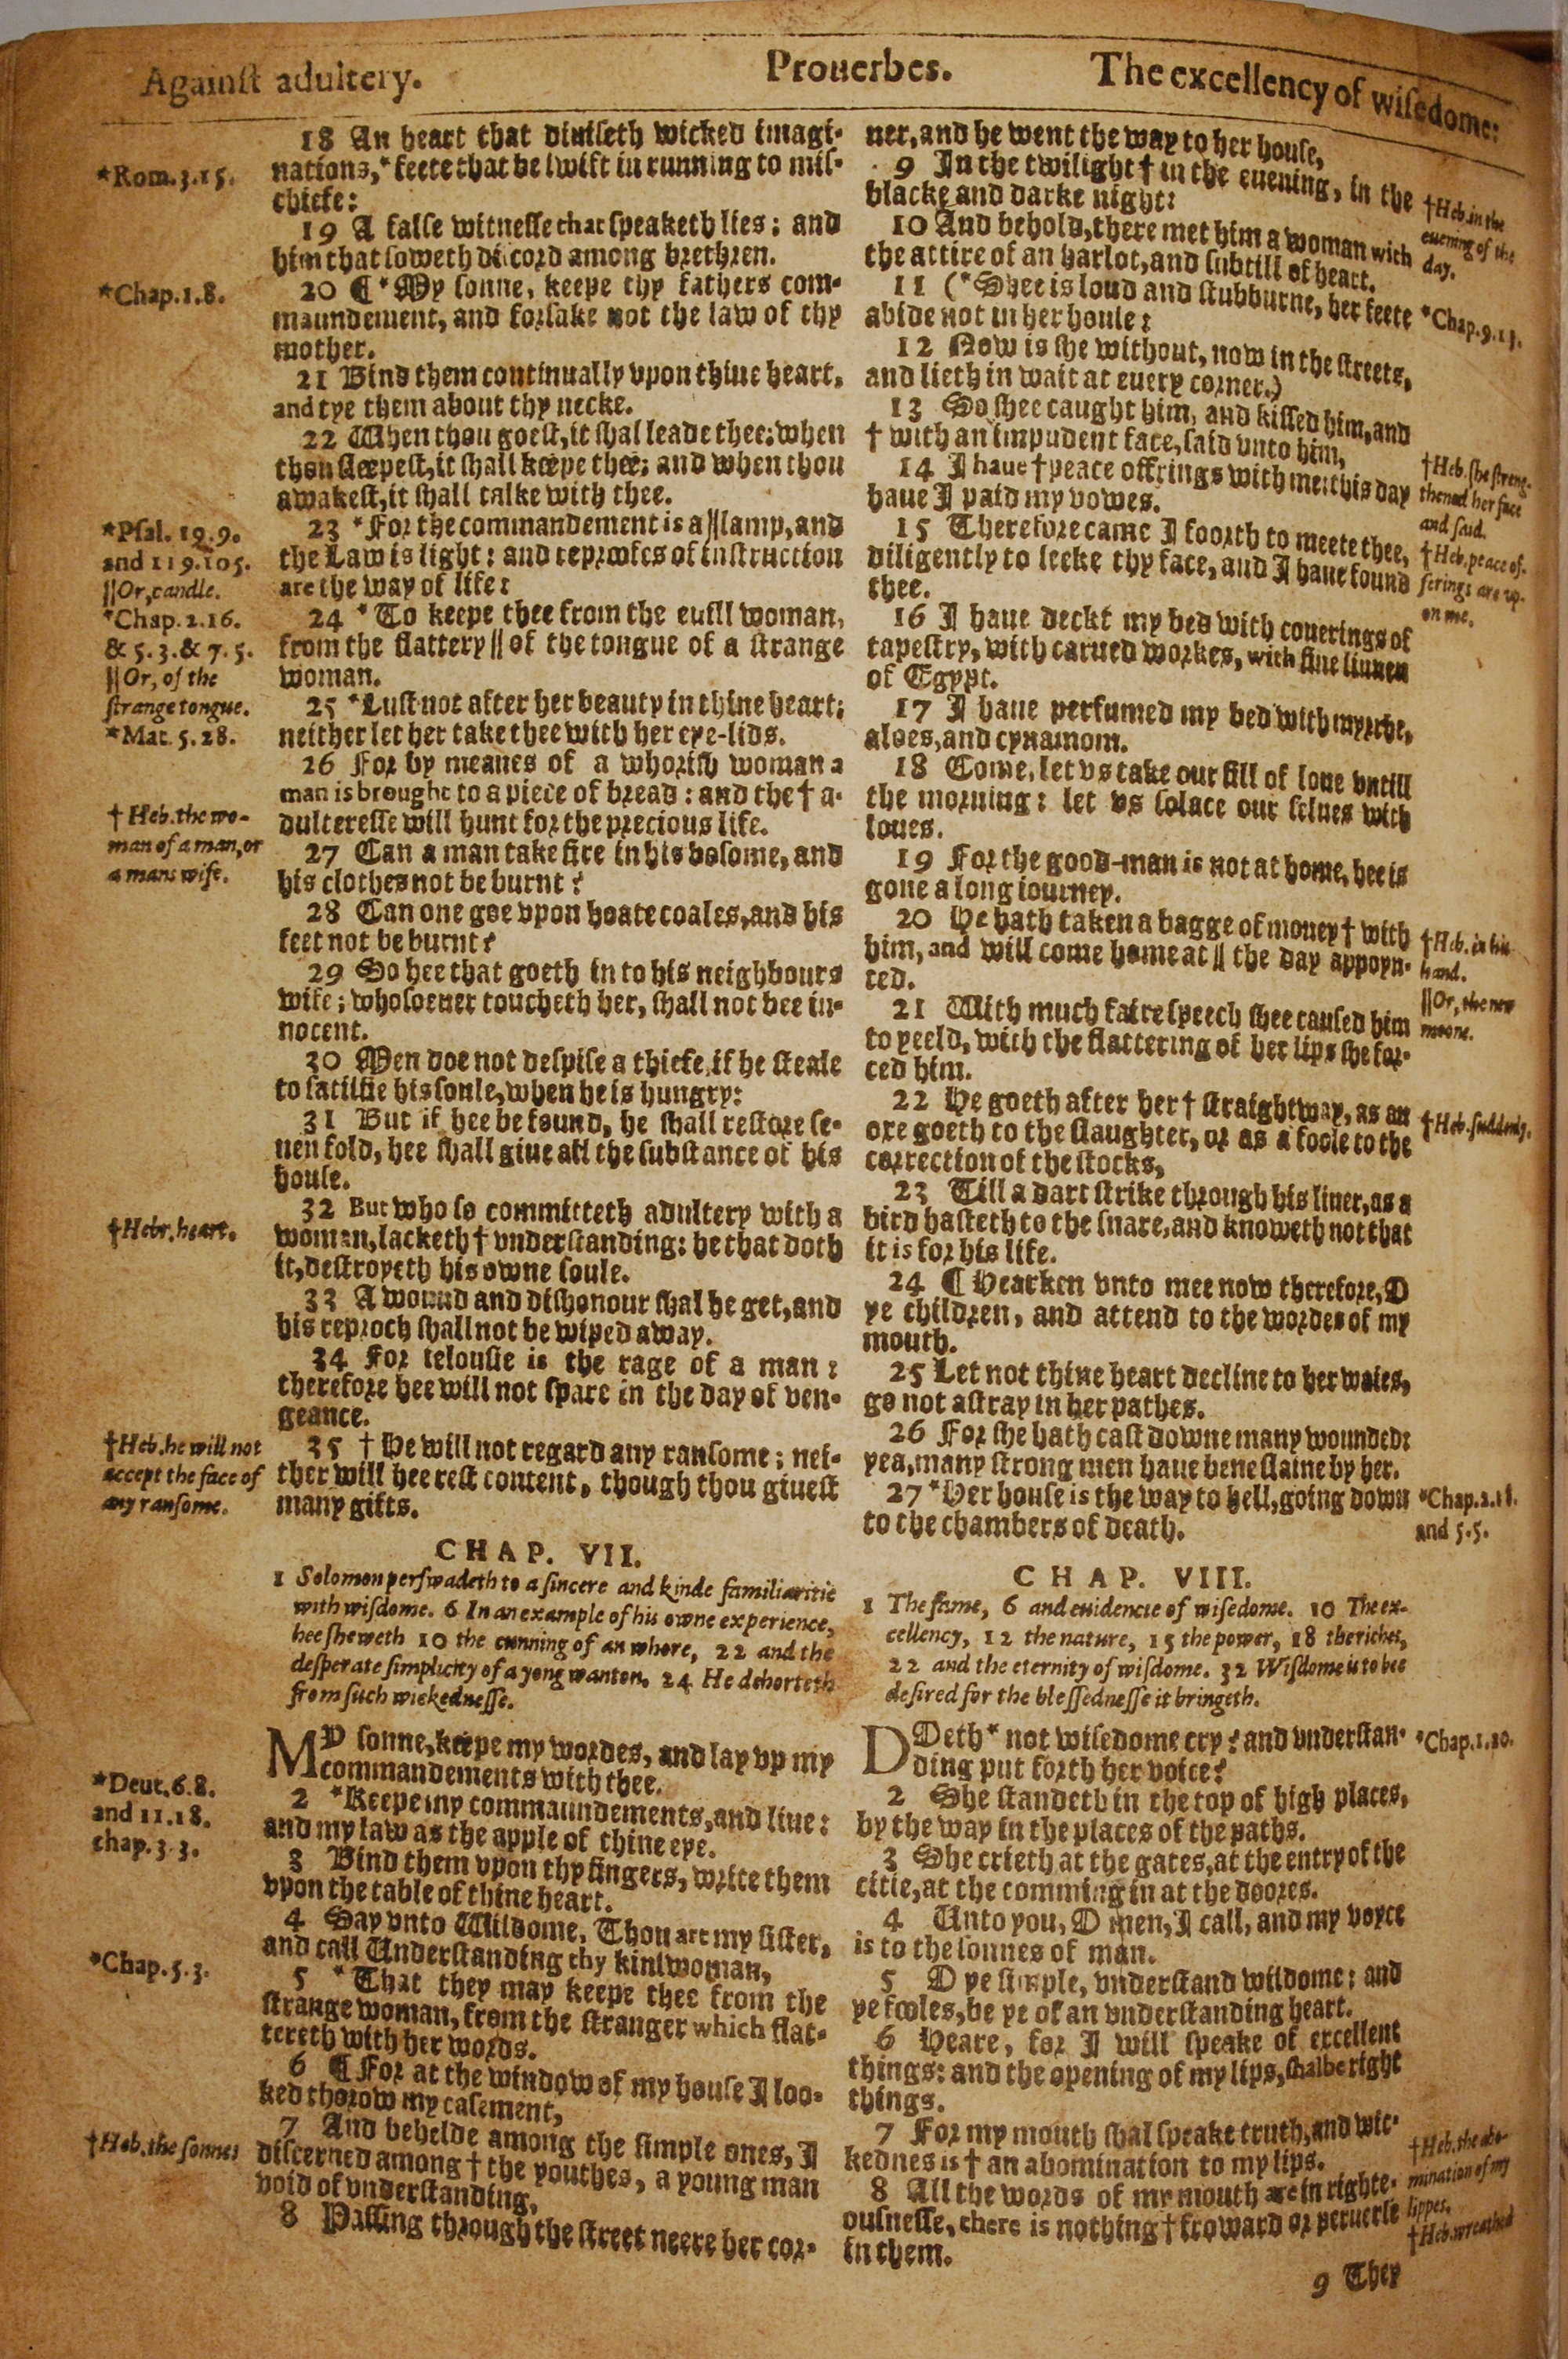 Againſt adultery.
Prouerbes.
The excellency of wiſedome:
*Rom.3.15.
*Chap.1.8.
*Pſal. 19.9.
and 119.105.
||Or, candle.
*Chap.2.16.
& 5.3.& 7.5.
||Or, of the
ſtrange tongue.
*Mat. 5.28.
† Heb. the wo-
man of a man, or
a mans wife.
†Hebr. heart.
†Heb. he will not
accept the face of
any ranſome.
*Deut. 6.8.
and 11.18.
chap. 3 3.
*Chap. 5.3.
†Heb. the ſonnes
18 An heart that diuiſeth wicked imagi-
nations, *feete that be ſwift in running to miſ-
chiefe:
19 A falſe witneſſe that ſpeaketh lies; and
him that ſoweth diſcord among brethren.
20 ¶ *My ſonne, keepe thy fathers com-
maundement, and forſake not the law of thy
mother.
21 Bind them continually vpon thine heart,
and tye them about thy necke.
22 When thou goeſt, it ſhal leade thee: when
thou ſleepeſt, it ſhall keepe thee; and when thou
awakeſt, it ſhall talke with thee.
23 *For the commandement is a ||lamp, and
the Law is light: and reproofes of inſtruction
are the way of life:
24 *To keepe thee from the euill woman,
from the flattery || of the tongue of a ſtrange
woman.
25 *Luſt not after her beauty in thine heart;
neither let her take thee with her eye-lids.
26 For by meanes of a whoriſh woman a
man is brought to a piece of bread: and the † a-
dultereſſe will hunt for the precious life.
27 Can a man take fire in his boſome, and
his clothes not be burnt?
28 Can one goe vpon hoate coales, and his
feet not be burnt?
29 So hee that goeth in to his neighbours
wife; whoſoeuer toucheth her, ſhall not bee in-
nocent.
30 Men doe not deſpiſe a thiefe, if he ſteale
to ſatiſfie his ſoule, when he is hungry:
31 But if hee be found, he ſhall reſtore ſe-
uen fold, hee ſhall giue all the ſubſtance of his
houſe.
32 But who ſo committeth adultery with a
woman, lacketh † vnderſtanding: he that doth
it, deſtroyeth his owne ſoule.
33 A wound and diſhonour ſhal he get, and
his reproch ſhall not be wiped away.
34 For ielouſie is the rage of a man:
therefore hee will not ſpare in the day of ven-
geance.
35 † He will not regard any ranſome; nei-
ther will hee reſt content, though thou giueſt
many gifts.
CHAP. VII.
1 Solomon perſwadeth to a ſincere and kinde familiaritie
with wiſdome. 6 In an example of his owne experience,
hee ſheweth 10 the cunning of an whore, 22 and the
deſperate ſimplicity of a yong wanton. 24 He dehorteth
from ſuch wickedneſſe.
MY ſonne, keepe my wordes, and lay vp my
commandements with thee.
2 *Keepe my commaundements, and liue:
and my law as the apple of thine eye.
3 Bind them vpon thy fingers, write them
vpon the table of thine heart.
4 Say vnto Wiſdome, Thou art my ſiſter,
and call Underſtanding thy kinſwoman,
5 *That they may keepe thee from the
ſtrange woman, from the ſtranger which flat-
tereth with her words.
6 ¶ For at the window of my houſe I loo-
ked thorow my caſement,
7 And behelde among the ſimple ones, I
diſcerned among † the youthes, a young man
void of vnderſtanding,
8 Paſſing through the ſtreet neere her cor-
ner, and he went the way to her houſe,
9 In the twilight † in the euening, in the
blacke and darke night:
10 And behold, there met him a woman with
the attire of an harlot, and ſubtill of heart.
11 (*Shee is loud and ſtubburne, her feete
abide not in her houſe:
12 Now is ſhe without, now in the ſtreets,
and lieth in wait at euery corner.)
13 So ſhee caught him, and kiſſed him, and
† with an impudent face, ſaid vnto him,
14 I haue † peace offrings with me: this day
haue I paid my vowes.
15 Therefore came I foorth to meete thee,
diligently to ſeeke thy face, and I haue found
thee.
16 I haue deckt my bed with couerings of
tapeſtry, with carued workes, with fine linnen
of Egypt.
17 I haue perfumed my bed with myrrhe,
aloes, and cynamom.
18 Come, let vs take our fill of loue vntill
the morning: let vs ſolace our ſelues with
loues.
19 For the good-man is not at home, hee is
gone a long iourney.
20 He hath taken a bagge of money † with
him, and will come home at || the day appoyn-
ted.
21 With much faire ſpeech ſhee cauſed him
to yeeld, with the flattering of her lips ſhe for-
ced him.
22 He goeth after her † ſtraightway, as an
oxe goeth to the ſlaughter, or as a foole to the
correction of the ſtocks,
23 Till a dart ſtrike through his liuer, as a
bird haſteth to the ſnare, and knoweth not that
it is for his life.
24 ¶ Hearken vnto mee now therefore, O
ye children, and attend to the wordes of my
mouth.
25 Let not thine heart decline to her waies,
go not aſtray in her pathes.
26 For ſhe hath caſt downe many wounded:
yea, many ſtrong men haue bene ſlaine by her.
27 *Her houſe is the way to hell, going down
to the chambers of death.
CHAP. VIII.
1 The fame, 6 and euidencie of wiſedome. 10 The ex-
cellency, 12 the nature, 15 the power, 18 the riches,
22 and the eternity of wiſdome. 32 Wiſdome is to bee
deſired for the bleſſedneſſe it bringeth.
DOeth * not wiſedome cry? and vnderſtan-
ding put forth her voice?
2 She ſtandeth in the top of high places,
by the way in the places of the paths.
3 She crieth at the gates, at the entry of the
citie, at the comming in at the doores.
4 Unto you, O men, I call, and my voyce
is to the ſonnes of man.
5 O ye ſimple, vnderſtand wiſdome: and
ye fooles, be ye of an vnderſtanding heart.
6 Heare, for I will ſpeake of excellent
things: and the opening of my lips, ſhalbe right
things.
7 For my mouth ſhal ſpeake truth, and wic-
kednes is † an abomination to my lips.
8 All the words of my mouth are in righte-
ouſneſſe, there is nothing † froward or peruerſe
in them.
9 They
†Heb. in the
euening of the
day.
*Chap. 9.13.
†Heb. ſhe ſtreng-
thened her face
and ſaid.
†Heb. peace of-
ferings are vp-
on me.
†Heb. in his
hand.
||Or, the new
moone.
†Heb. ſuddenly.
*Chap. 2.18.
and 5.5.
*Chap. 1.20.
†Heb. the abo-
mination of my
lippes.
†Heb. wreathed